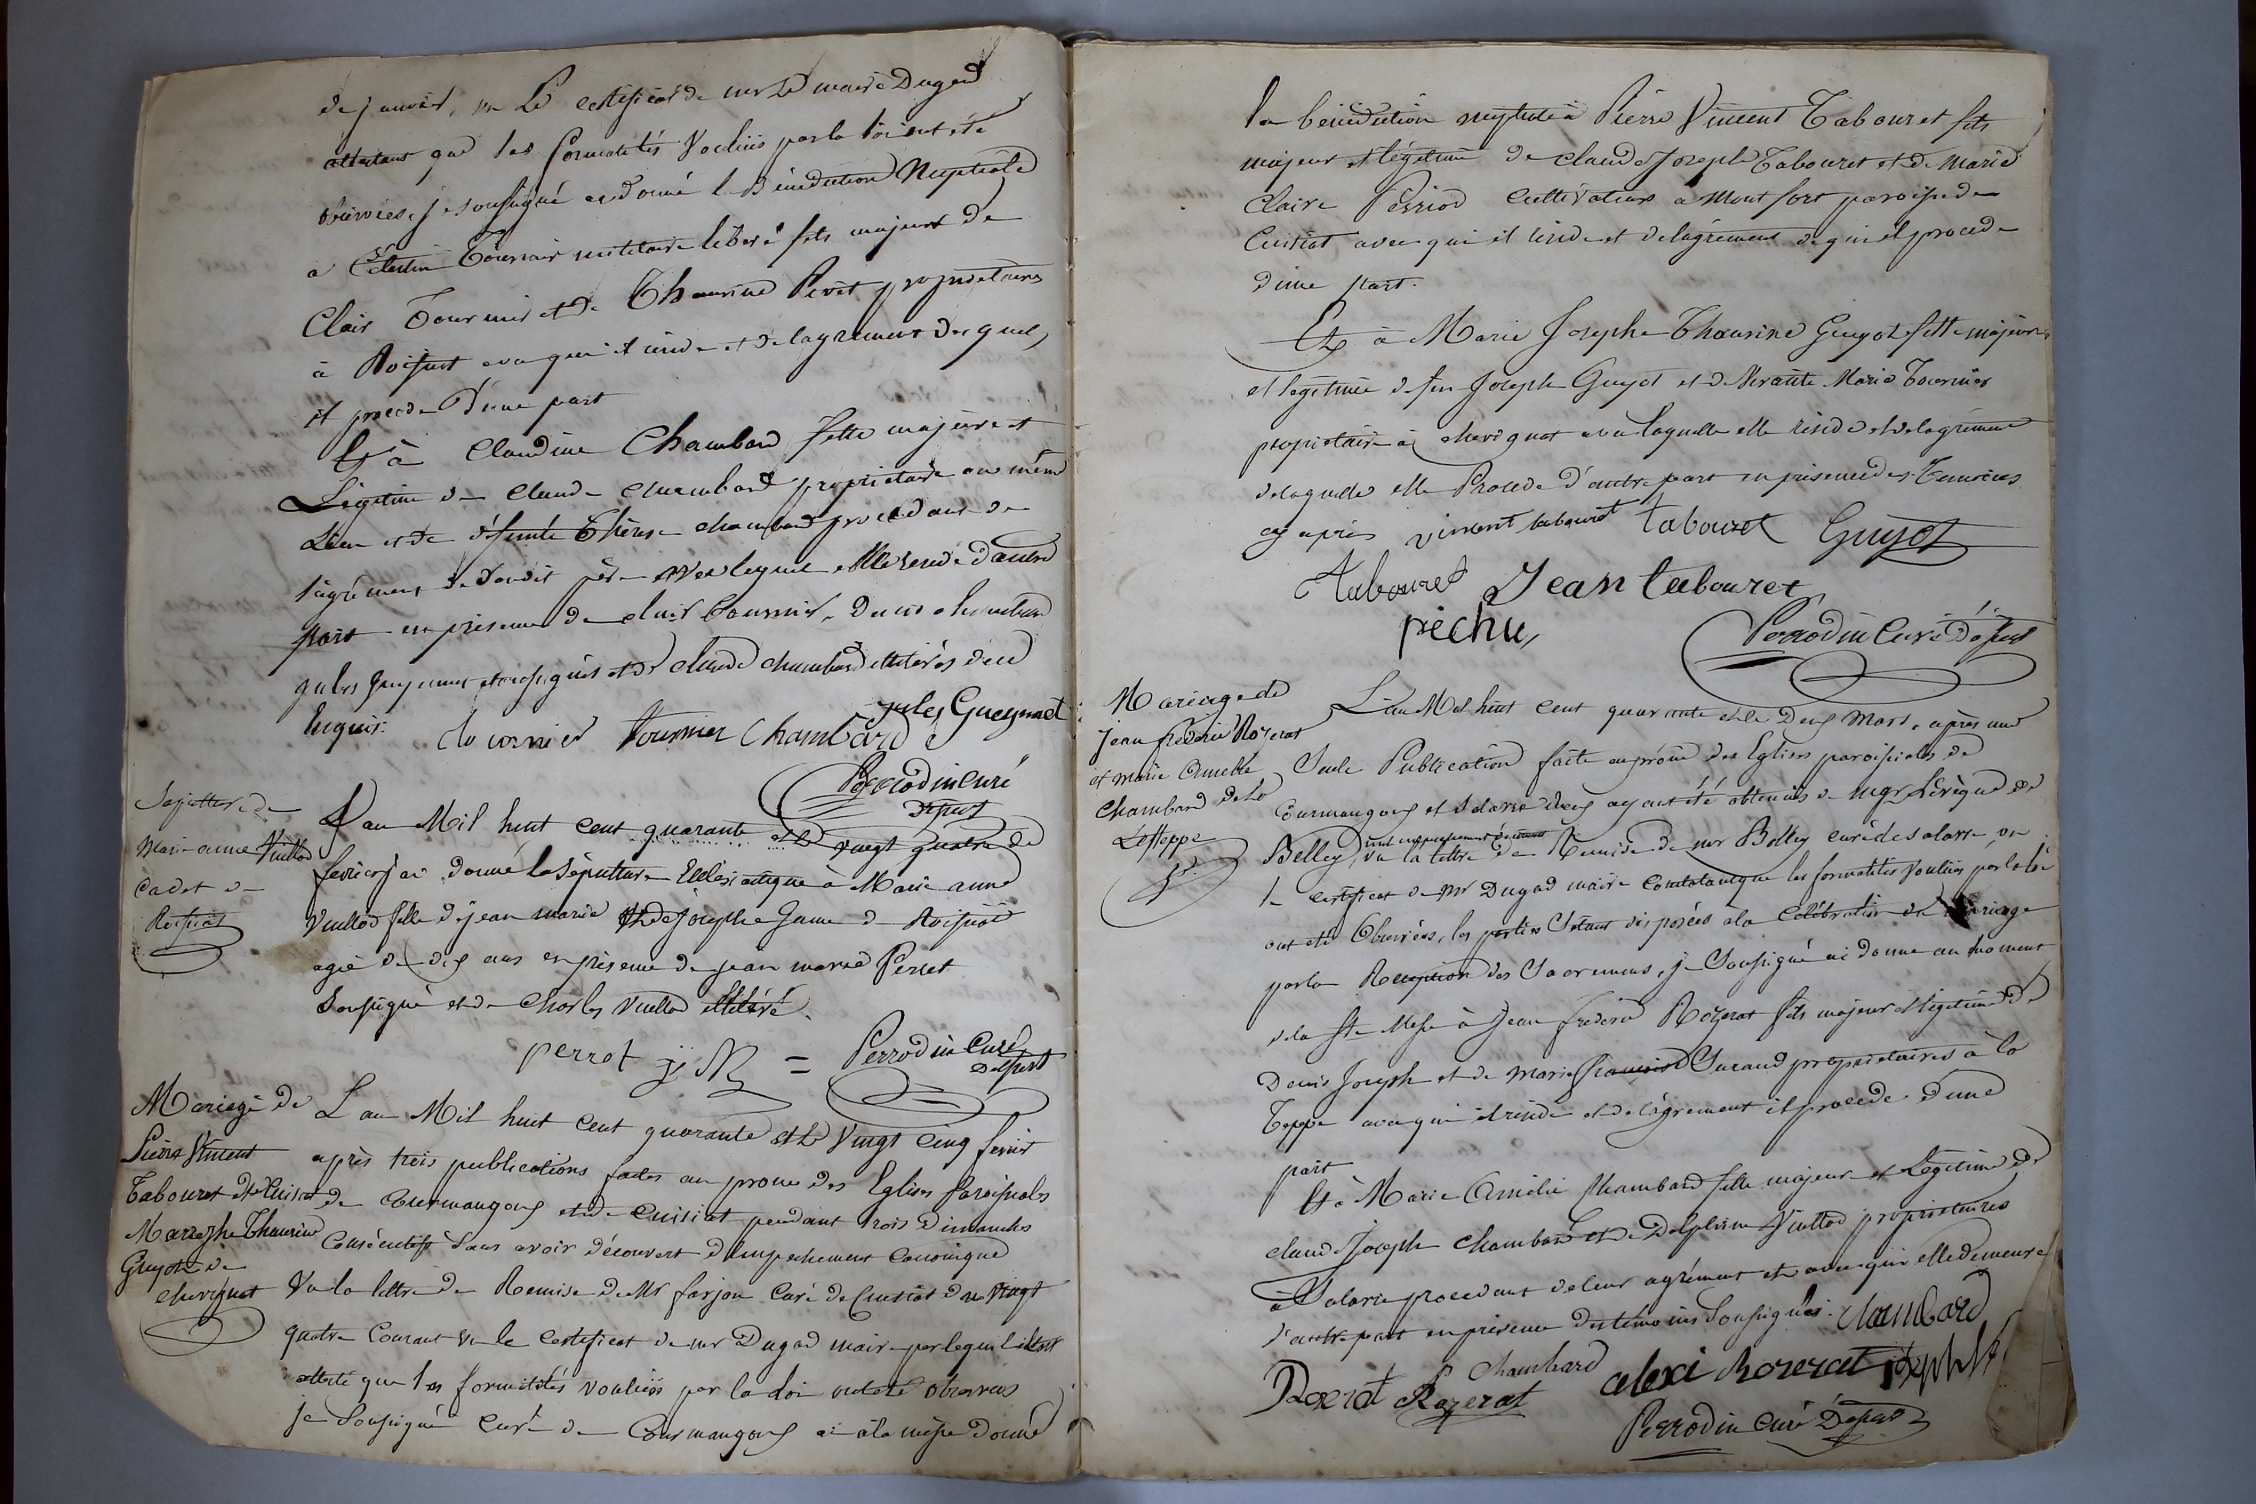 de janvier, vu Le certificat de mr Le maire Dugad
attestant que les formalités Voulües par la loi ont été
observées, je soussigné ai donné la Bénédiction Nuptiale
a Célestin Tournier militaire libéré fils majeur de
Clair Tournier et de Thaurine Perret propriétaires
à Roissiat avec qui il réside et de lagrément des quels
il procede D'une part
Et à Claudine Chambard fille majeure et
Légitime de Claude Chambard propriétaire au même
Lieu et de défunte Thérèse Chambard procédant de
l'agrément de son dit père avec lequel elle réside d'autre
part en présence de clair Tournier, Denis Chambard
jules Gueynet soussignés et de Claude Chambard illitérés d'eux
Enquis. tournier tournier Chambard jules Gueynet
Perrodin Curé
Défert
Sépulture de
Marie anne Vuillod
Cadet de
Roissiat
L'an Mil huit cent quarante et le vingt quatre de
fevrier j'ai donné la Sépulture Ecclésiastique à Marie anne
Vuillod fille de jean marie et de josephe Game de Roissiat
agée de dix ans en présence de jean marie Perret
Soussigné et de Charles Vuillod illitéré.
perrot j M = Perrodin Curé
Défert
Mariage de
Pierre Vincent
Tabouret de Cuisiat et
Mar josephe Thaurine
Guyot de
chevignat
L'an Mil huit Cent quarante et le Vingt Cinq fevrier
après trois publications faites au prone des Eglises Paroissiales
de Courmangoux et de Cuisiat pendant trois Dimanches
Consécutifs Sans avoir découvert d'Empechement Canonique
Vu la lettre de Remise de Mr farjon Curé de Cuisiat du Vingt
quatre Courant vu le Certificat de mr Dugad maire par lequel il est
attesté que les formalités voulües par la loi ont été observées
je Soussigné Curé de Courmangoux ai à la messe donné
la bénédiction nuptiale à Pierre Vincent Tabouret fils
majeur et légitime de claude Joseph Tabouret et de Marie
Claire Perriod Cultivateurs à Montfort paroisse de
Cuisiat avec qui il réside et de lagrément de qui il procede
d'une part.
Et à Marie Josephe Thaurine Guyot fille majeure
et legitime de feu Joseph Guyot et de Vivante Marie Tournier
propriétaire à chevignat avec laquelle elle réside et de lagrément
de laquelle elle Procede d'autre part en présence des Témoins
cy après vincent tabouret tabouret Guyot
tabouret Jean tabouret
péchu,
Perrodin Curé Défert
Mariage de
jean fréderic Rozerat
et marie Amelie
Chambard de la
Teppe
L'an Mil huit Cent quarante et le Deux Mars, après une
Seule Publication faite au prône des Eglises paroissiales de
Courmangoux et Salavre deux ayant été obtenües de mgr L'évêque de
Belley, nul empechement découvert vu la lettre de Remise de mr Bolley curé de Salavre, vu
le certificat de mr Dugad maire Constatant que les formalités Voulües par la loi
ont été Observées, les parties s'étant disposées à la Célébration du Mariage
par la Reception des Sacremens, je Soussigné ai donné au moment
de la Ste Messe à jean frederic Rozerat fils majeur et légitime de
Denis Joseph et de marie françoise Suzand propriétaires à la
Teppe avec qui il réside et de l'agrément il procede d'une
part
Et à Marie Amélie Chambard fille majeure et Légitime de
claude Joseph Chambard et de Delphine Vuillod propriétaires
à Salavre procedant de leur agrément et avec qui elle demeure
d'autre part en présence des témoins Soussignés. Chambard
Rozerat Rozerat Chambard alexi Rozerat
Perrodin Curé Défert